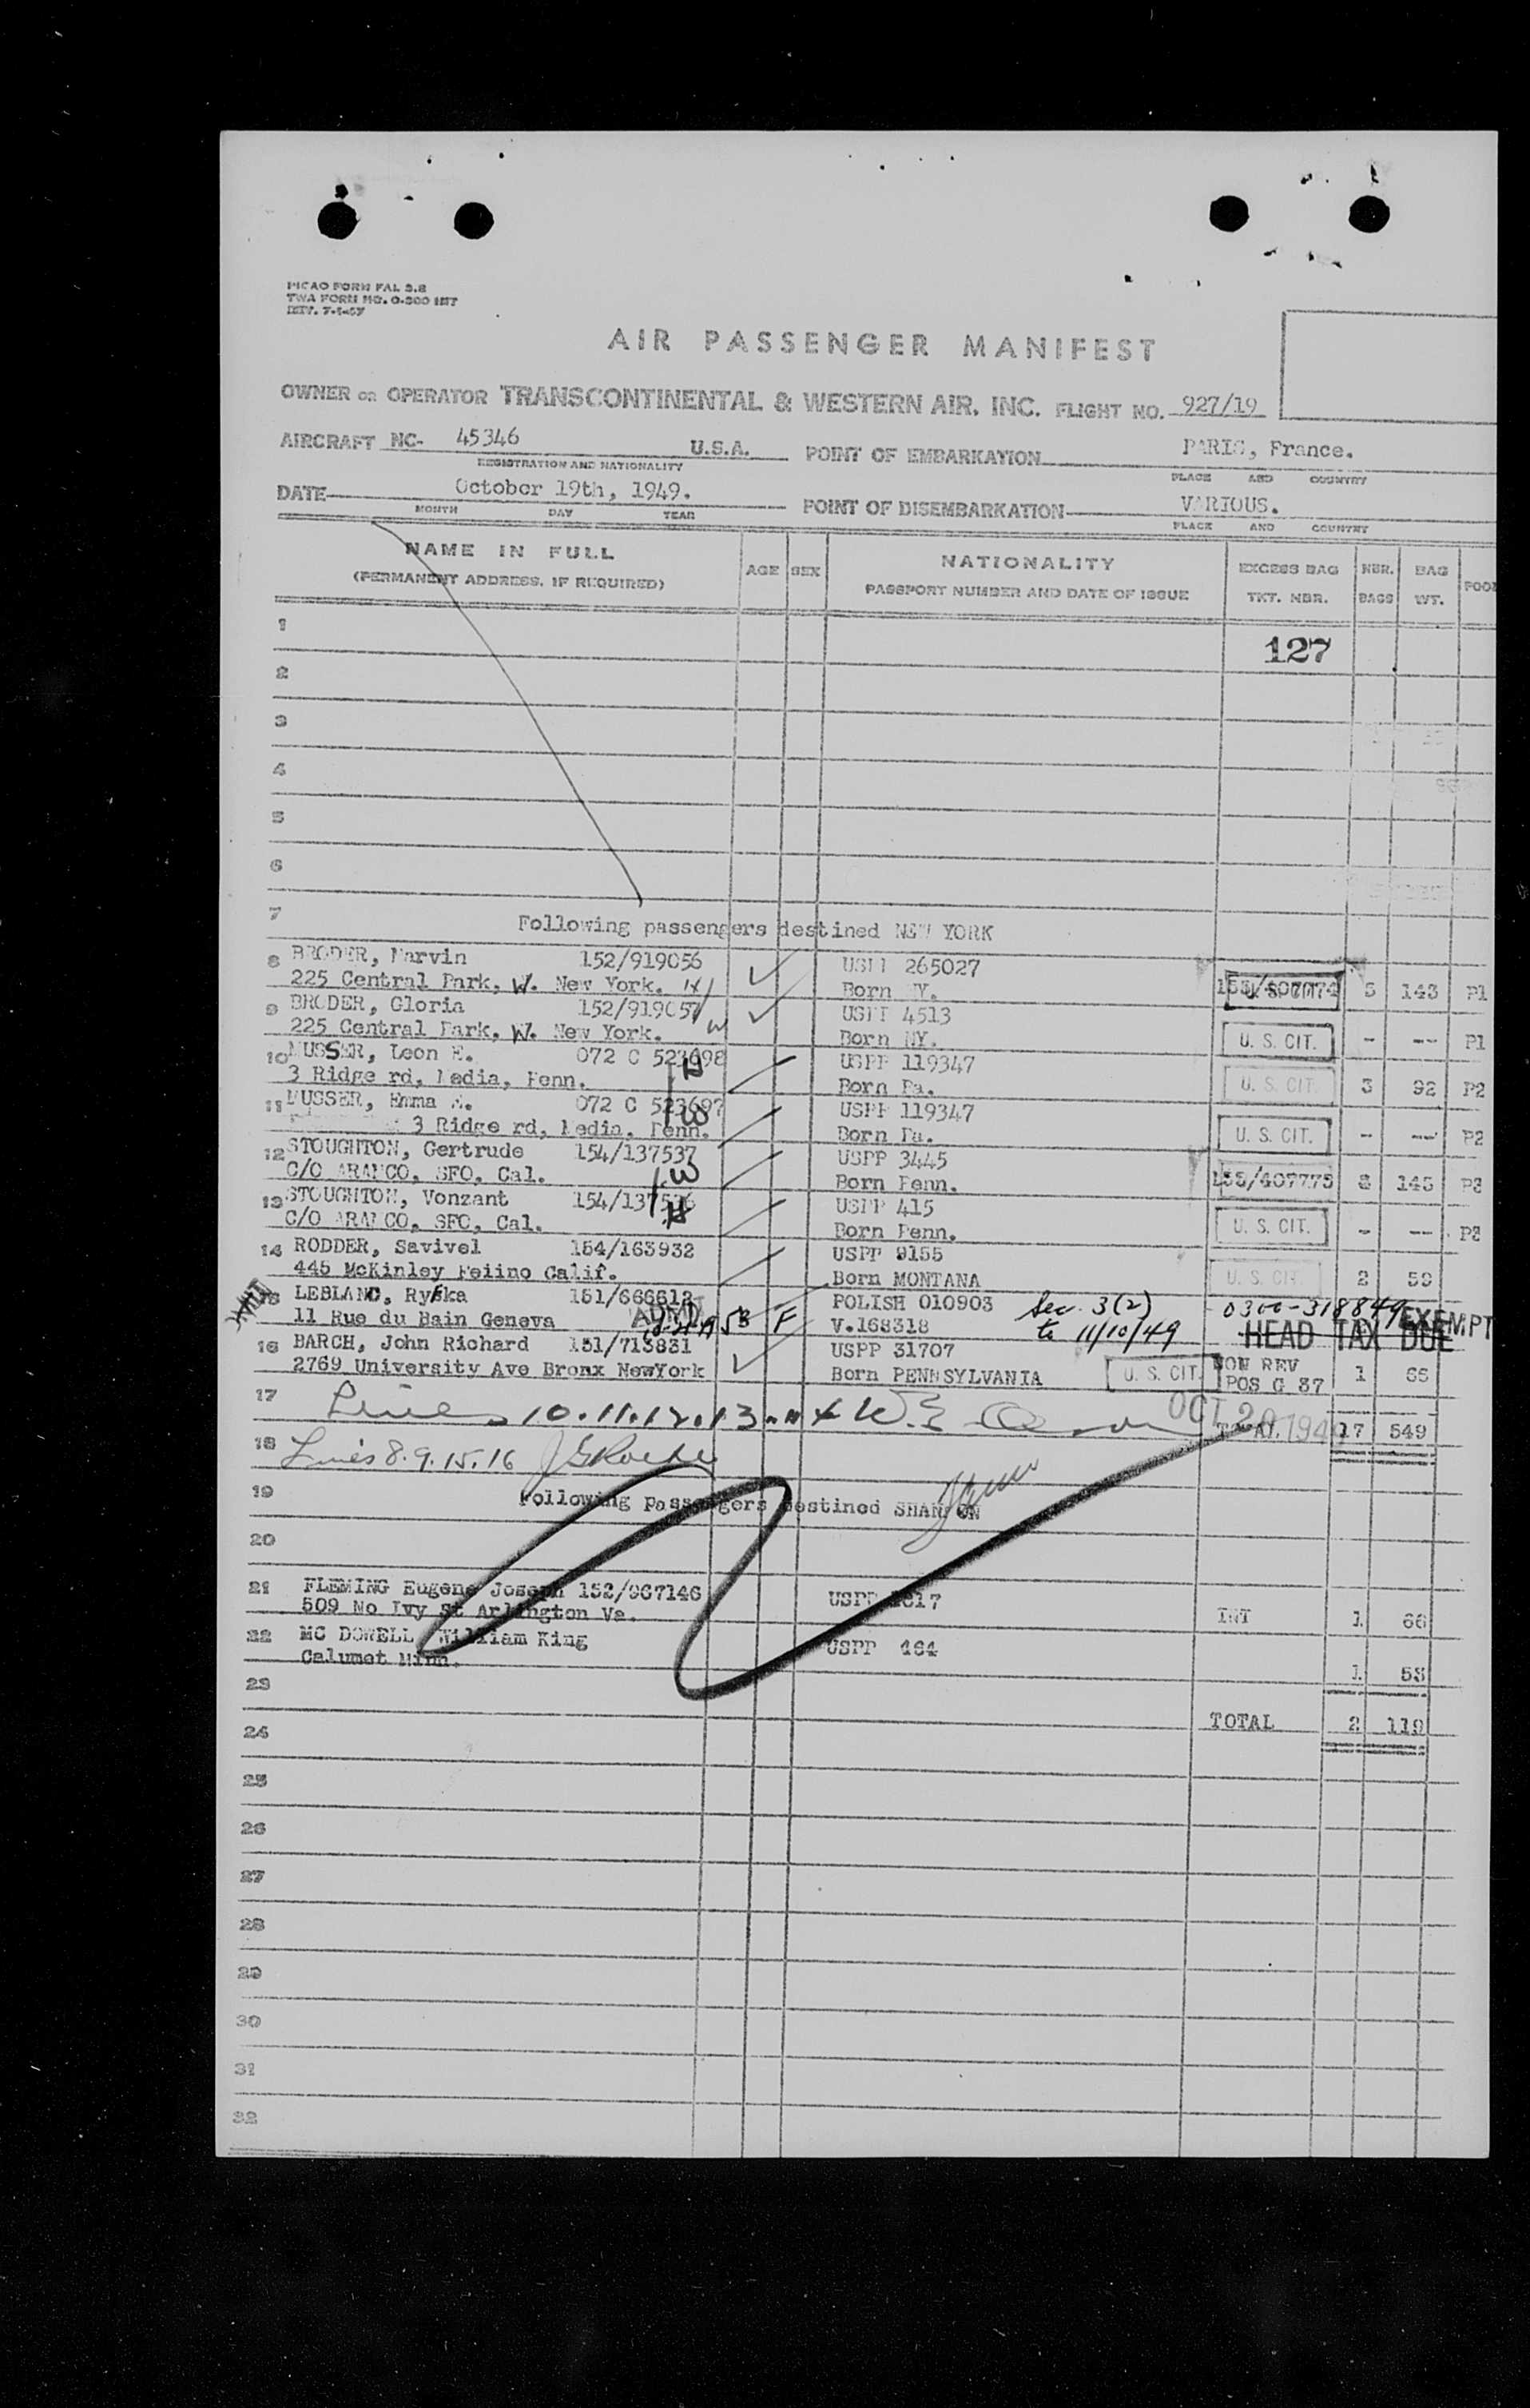 PICAO FORM FAL 3.2
TWA FORM NO. O-300 INT
REV. 7-1-47
AIR PASSENGER MANIFEST
OWNER OR OPERATOR TRANSCONTINENTAL & WESTERN AIR, INC. FLIGHT NO. 927/19
AIRCRAFT NC- 45346 U.S.A. POINT OF EMBARKATION PARIS, France.
REGISTRATION AND NATIONALITY PLACE AND COUNTRY
DATE October 19th, 1949. POINT OF DISEMBARKATION VARIOUS.
MONTH DAY YEAR PLACE AND COUNTRY
NAME IN FULL AGE SEX NATIONALITY EXCESS BAG NBR. BAG
(PERMANENT ADDRESS, IF REQUIRED) PASSPORT NUMBER AND DATE OF ISSUE TKT. NBR. BAGS WT.
1 127
2
3
4
5
6
7 Following passengers destined NEW YORK
8 BRODER, Marvin 152/919056 265027
225 Central Park, W. New York. Born NY. U.S. CIT. 143 P1
9 BRODER, Gloria 152/919057 4513
225 Central Park, W. New York. Born NY. U. S. CIT. - --- P1
10 MUSSER, Leon E. 072 C 523698 USPP 119347
3 Ridge rd, Media, Penn. Born Pa. U. S. CIT. 3 92 P2
11 MUSSER, Emma 072 C 523697 USPP 119347
3 Ridge rd, Media, Penn. Born Pa. U. S. CIT. - --- P2
12 STOUGHTON, Gertrude 154/137537 USPP 3445
C/O ARAMCO, SFO, Cal. Born Penn. 155/407775 145
13 STOUGHTON, Vonzant 154/137536 USPP 415
C/O ARAMCO, SFO, Cal. Born Penn. U. S. CIT. - ---
14 RODDER, Savivel 154/163932 USPP 9155
445 McKinley Feiino Calif. Born MONTANA U. S. CIT. 2
15 LEBLANC, Ryfka 151/666612 POLISH 010903 Sec. 3(2) 0300-318849 EXEMPT
11 Rue du Bain Geneva ADMT 53 F V.168318 to 11/10/49 HEAD TAX DUE
16 BARCH, John Richard 151/713831 USPP 31707 NON REV
2769 University Ave Bronx NewYork Born PENNSYLVANIA U. S. CIT. POS G 37 1 66
17 Lines 10.11.12.13. OCT 20 1949 TOTAL 17 549
18 Lines 8.9.15.16
19 Following passengers destined SHANNON
20
21 FLEMING Eugene Joseph 152/967146 USPP
509 No Ivy St Arlington Va. INT 1 66
22 MC DOWELL William King USPP 464
Calumet Minn. 1 53
23
24 TOTAL 2 119
25
26
27
28
29
30
31
32